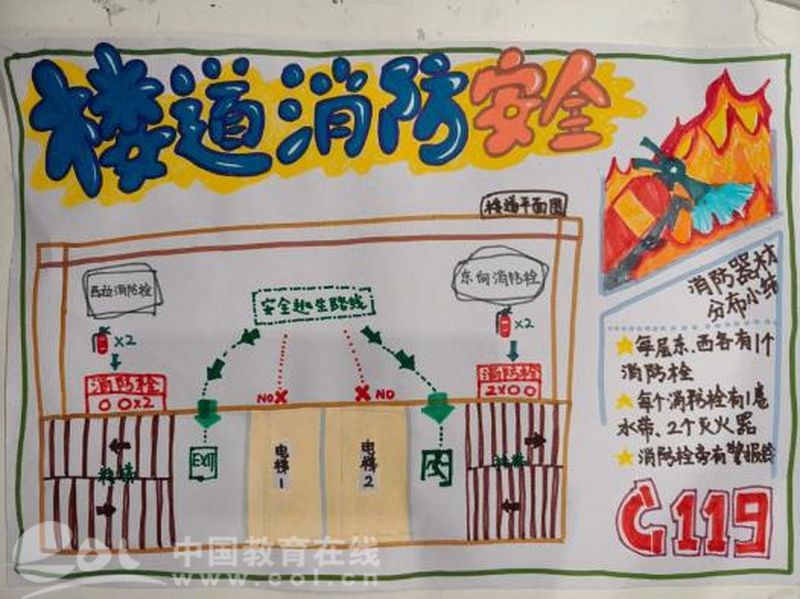 楼道消防安全
楼道平面图
西边消防栓
x2
消防栓
00x2
安全逃生路线
NO
NO
东向消防栓
x2
消防栓
2x00
楼梯
EXIT
电梯1
电梯2
楼梯
消防器材
分布小结
每层东、西各有1个
消防栓
每个消防栓有1卷
水带、2个灭火器
消防栓旁有警报铃
119
eol
中国教育在线
www.eol.cn